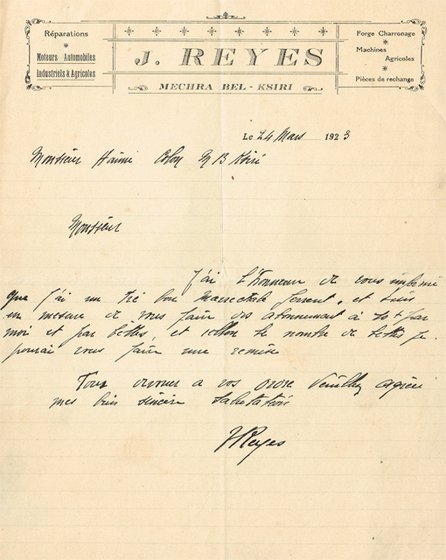 Réparations
Moteurs Automobiles
Industriels & Agricoles
J. REYES
MECHRA BEL-KSIRI
Forge Charronage
Machines
Agricoles
Pièces de rechange
Le 24 Mars 1923
Monsieur Colon M B Ksiri
Monsieur
J'ai l'Honneur de vous informé
que j'ai un tré bon Marrechale ferrent, et suis
en mesure de vous faire des abonnement à par
moi et par bettes, et sellon le nombre de bettes je
pourai vous faire une remise
Tous devoué a vos ordre Veuillez agréer
mes bien sincère salutation
JReyes